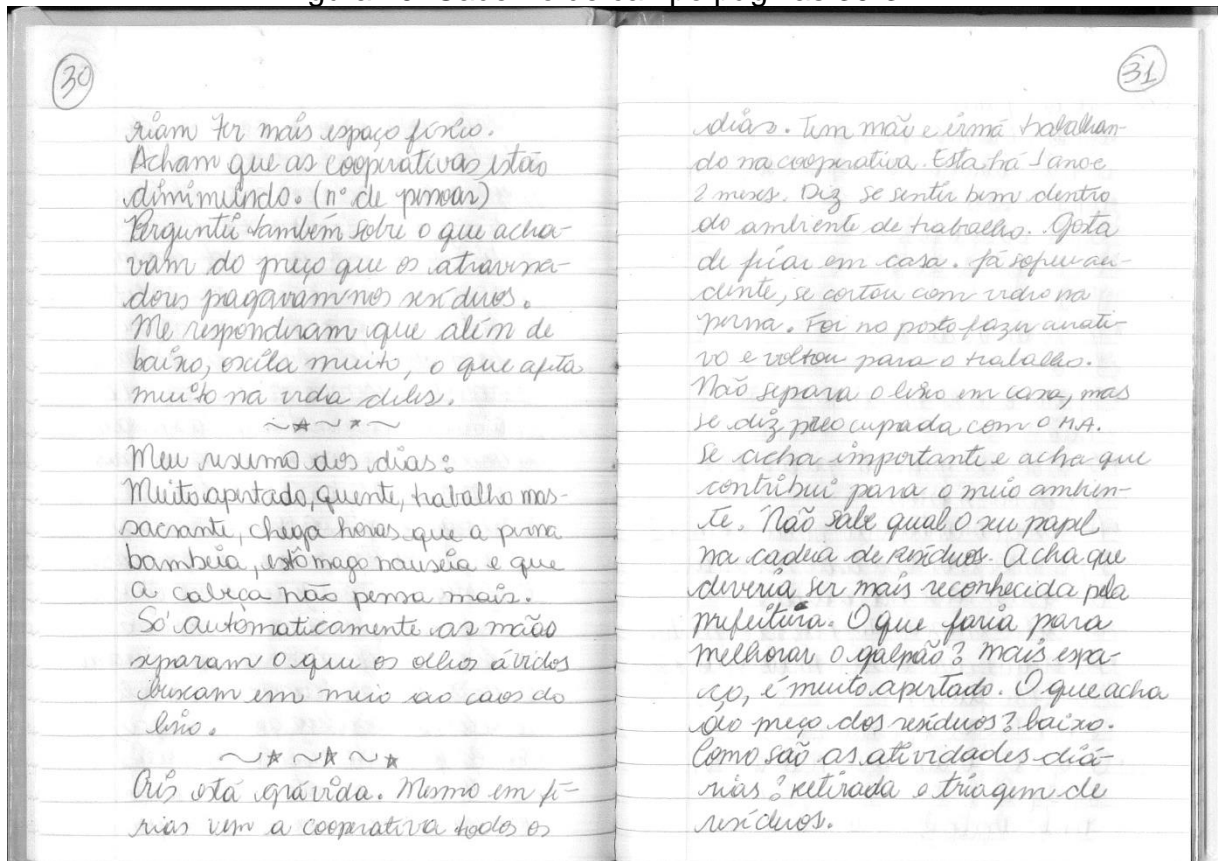 30
riam ter mais espaço físico.
Acham que as cooperativas estão
diminuindo. (nº de pessoas)
Perguntei também sobre o que acha-
vam do preço que os atravessa-
dores pagavam nos resíduos.
Me responderam que além de
baixo, oscila muito, o que afeta
muito na vida deles.
Meu resumo dos dias:
Muito apertado, quente, trabalho mas-
sacrante, chega horas que a perna
bambeia, estômago nauseia e que
a cabeça não pensa mais.
Só automaticamente as mãos
separam o que os olhos ávidos
buscam em meio ao caos do
lixo.
Cris está grávida. Mesmo em fé-
rias vem a cooperativa todos os
31
dias. Tem mãe e irmã trabalhan-
do na cooperativa. Esta há 1 ano e
2 meses. Diz se sentir bem dentro
do ambiente de trabalho. Gosta
de ficar em casa. Já sofreu aci-
dente, se cortou com vidro na
perna. Foi no posto fazer curati-
vo e voltou para o trabalho.
Não separa o lixo em casa, mas
se diz preocupada com o M.A.
Se acha importante e acha que
contribui para o meio ambien-
te. Não sabe qual o seu papel
na cadeia de resíduos. Acha que
deveria ser mais reconhecida pela
prefeitura. O que faria para
melhorar o galpão? mais espa-
ço, é muito apertado. O que acha
do preço dos resíduos? baixo.
Como são as atividades diá-
rias? retirada e triagem de
resíduos.